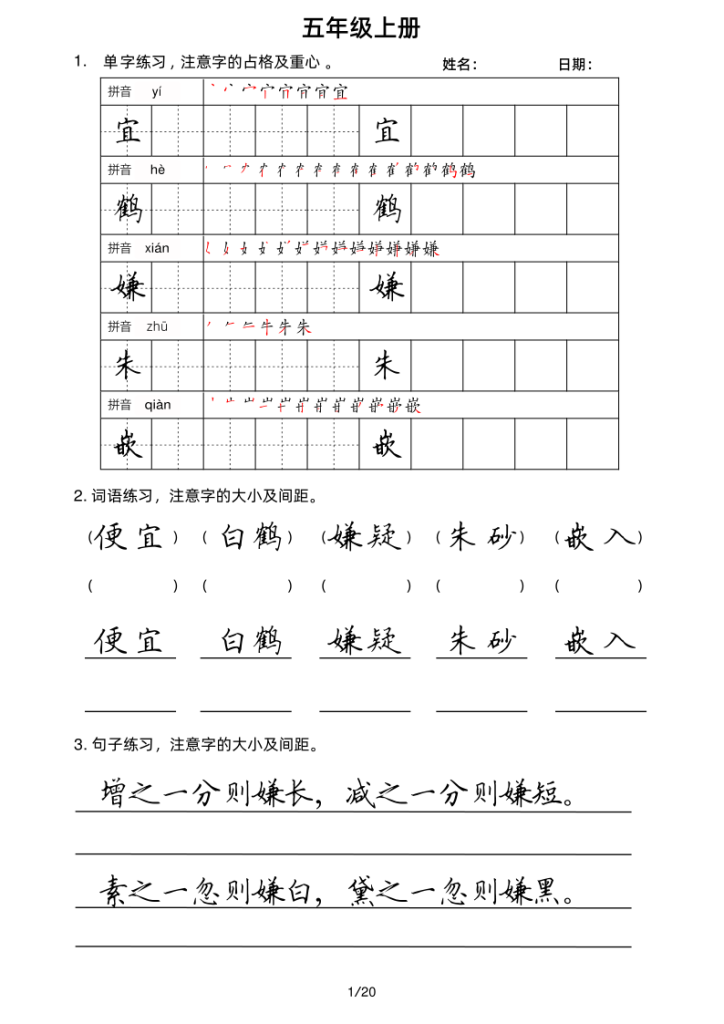 五年级上册
1. 单字练习，注意字的占格及重心。 姓名： 日期：
拼音 yí
宜 宜
拼音 hè
鹤 鹤
拼音 xián
嫌 嫌
拼音 zhū
朱 朱
拼音 qiàn
嵌 嵌
2. 词语练习，注意字的大小及间距。
(便宜) (白鹤) (嫌疑) (朱砂) (嵌入)
( ) ( ) ( ) ( ) ( )
便宜 白鹤 嫌疑 朱砂 嵌入
3. 句子练习，注意字的大小及间距。
增之一分则嫌长，减之一分则嫌短。
素之一忽则嫌白，黛之一忽则嫌黑。
1/20